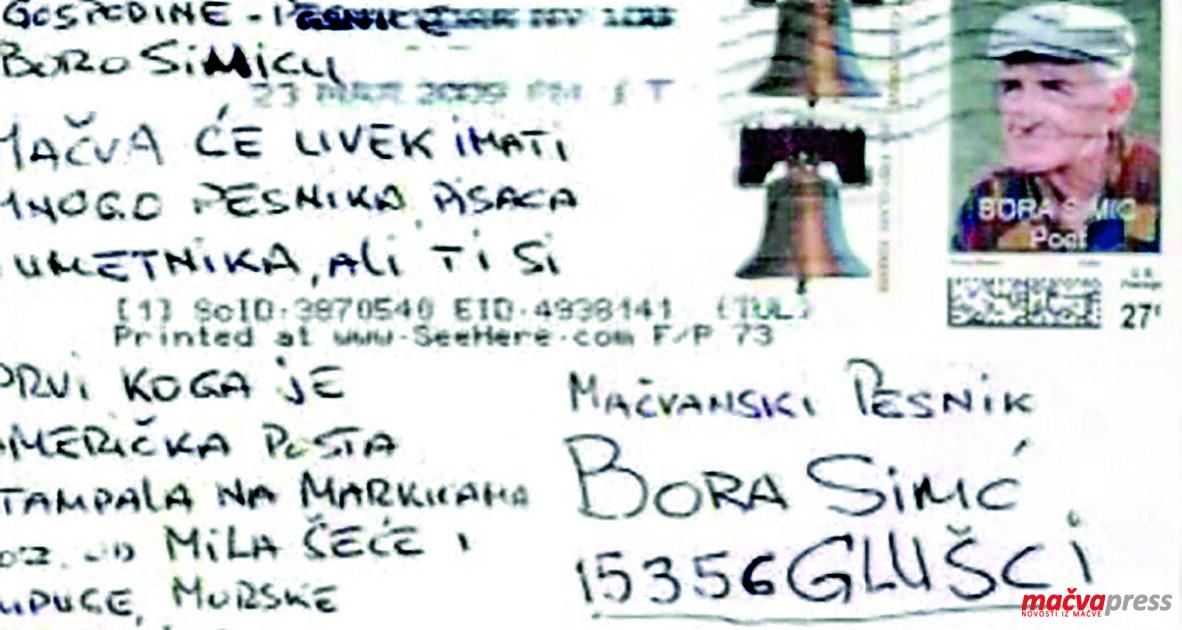 GOSPODINE - PESNIČE
BORO SIMIĆU
23 MAR 2009 PM T
MAČVA ĆE UVEK IMATI
MNOGO PESNIKA, PISACA
UMETNIKA, ALI TI SI
BORA SIMIC
Poet
27¢
[1] SoID-3870540 EID-4938141 (TUL)
Printed at www.SeeHere.com F/P 73
PRVI KOGA JE
AMERIČKA POŠTA
ŠTAMPALA NA MARKICAMA
POZ. OD MILA ŠEĆE I
MURSKE
MAČVANSKI PESNIK
BORA SIMIĆ
15356 GLUŠCI
mačvapress
NOVOSTI IZ MAČVE